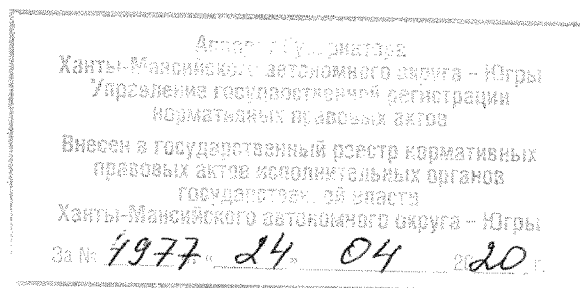 Аппарат Губернатора
Ханты-Мансийского автономного округа – Югры
Управление государственной регистрации
нормативных правовых актов
Внесен в государственный реестр нормативных
правовых актов исполнительных органов
государственной власти
Ханты-Мансийского автономного округа – Югры
За № 4977 «24» 04 2020 г.